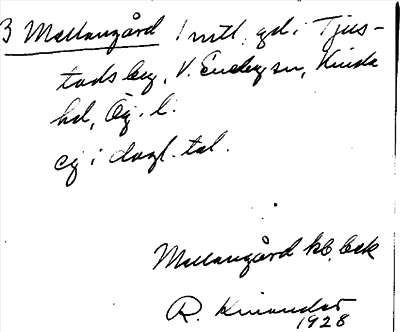 3 Mellangård 1 mtl. gd. i Tjus-
tadsby, V. Eneby sn, Kinda
hd, Ög. l.
ej i dagl. tal.
Mellangård kb, bek
R. 
1928